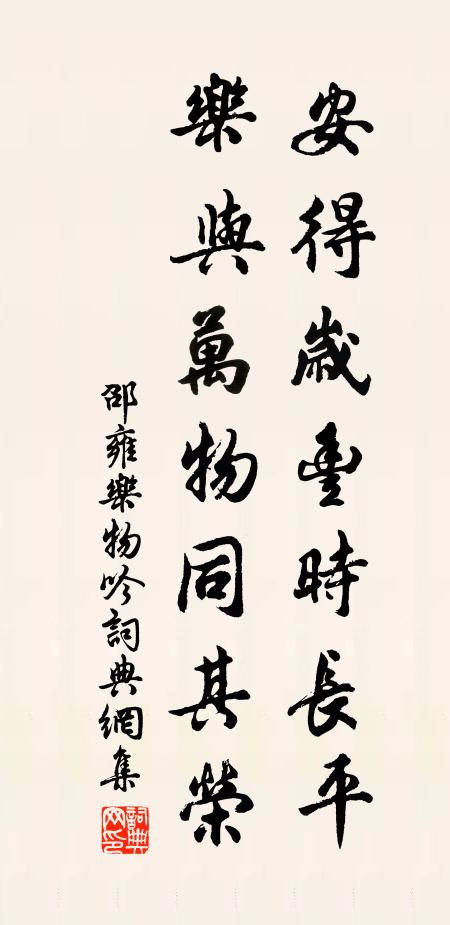 安得歲豐時長平
樂與萬物同其榮
邵雍樂物吟詞典網集
詞典网印